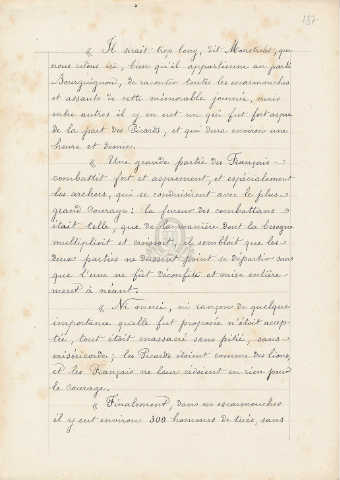 187
« Il serait trop long, dit Monstrelet, que
nous citons ici, bien qu'il appartienne au parti
Bourguignon, de raconter toutes les escarmouches
et assauts de cette mémorable journée, mais
entre autres il y en eut un qui fut fort aspre
de la part des Picards, et qui dura environ une
heure et demie.
« Une grande partie des Français
combattit fort et asprement, et espécialement
les archers, qui se conduisirent avec le plus
grand courage : la fureur des combattans
était telle, que de la manière dont la besogne
multiplioit et croissoit, il sembloit que les
deux parties ne dussent point se départir sans
que l'une ne fût déconfite et mise entière-
ment à néant.
« Ni merci, ni rançon de quelque
importance qu'elle fut proposée n'était accep-
tée, tout était massacré sans pitié, sans
miséricorde ; les Picards étoient comme des lions,
et les Français ne leur cédoient en rien pour
le courage.
« Finalement, dans ces escarmouches
il y eut environ 300 hommes de tués, sans